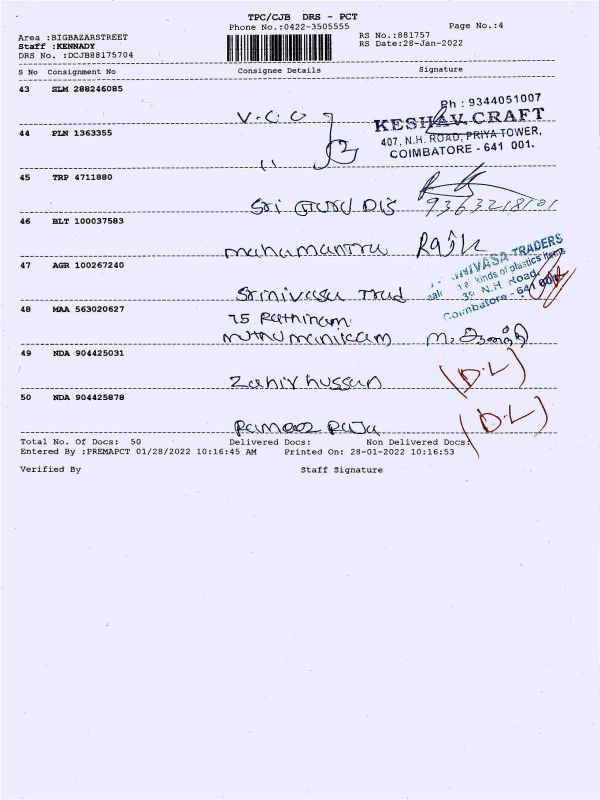 TPC/CJB DRS - PCT
Phone No.:0422-3505555 Page No.:4
Area :BIGBAZARSTREET RS No.:881757
Staff :KENNADY RS Date:28-Jan-2022
DRS No. :DCJB88175704
S No Consignment No Consignee Details Signature
43 SLM 288246085
Ph : 9344051007
V.C.C KESHAV CRAFT
44 PLN 1363355 407, N.H. ROAD, PRIYA TOWER,
COIMBATORE - 641 001.
"
45 TRP 4711880
Sri Guru Dis 9363218101
46 BLT 100037583
mahamantra Rajk
47 AGR 100267240
TRADERS
all kinds of plastics items
Srinivasa Trad 39 N.H Road,
Coimbatore - 641 001
48 MAA 563020627
75 Rathinam
muthu manikam
49 NDA 904425031
Zahir hussan (D.L)
50 NDA 904425878
Rameez Raja (D.L)
Total No. Of Docs: 50 Delivered Docs: Non Delivered Docs:
Entered By :PREMAPCT 01/28/2022 10:16:45 AM Printed On: 28-01-2022 10:16:53
Verified By Staff Signature